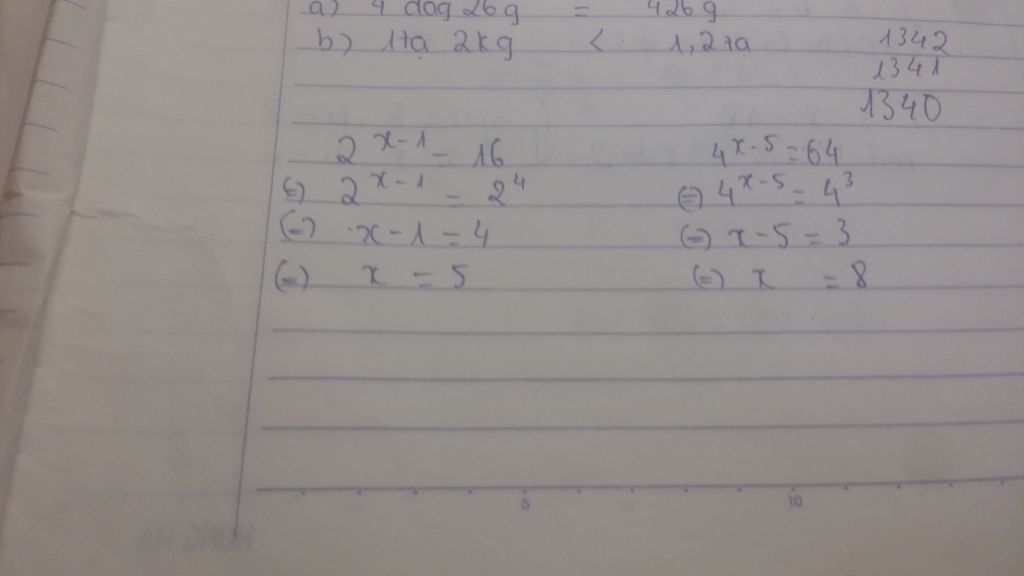 a) 4 dag 26g = 426g
b) 1tạ 2kg < 1,2 tạ 1342
1341
1340
2^{x-1} = 16 4^{x-5} = 64
(=) 2^{x-1} = 2^4 (=) 4^{x-5} = 4^3
(=) x-1 = 4 (=) x-5 = 3
(=) x = 5 (=) x = 8
5 10